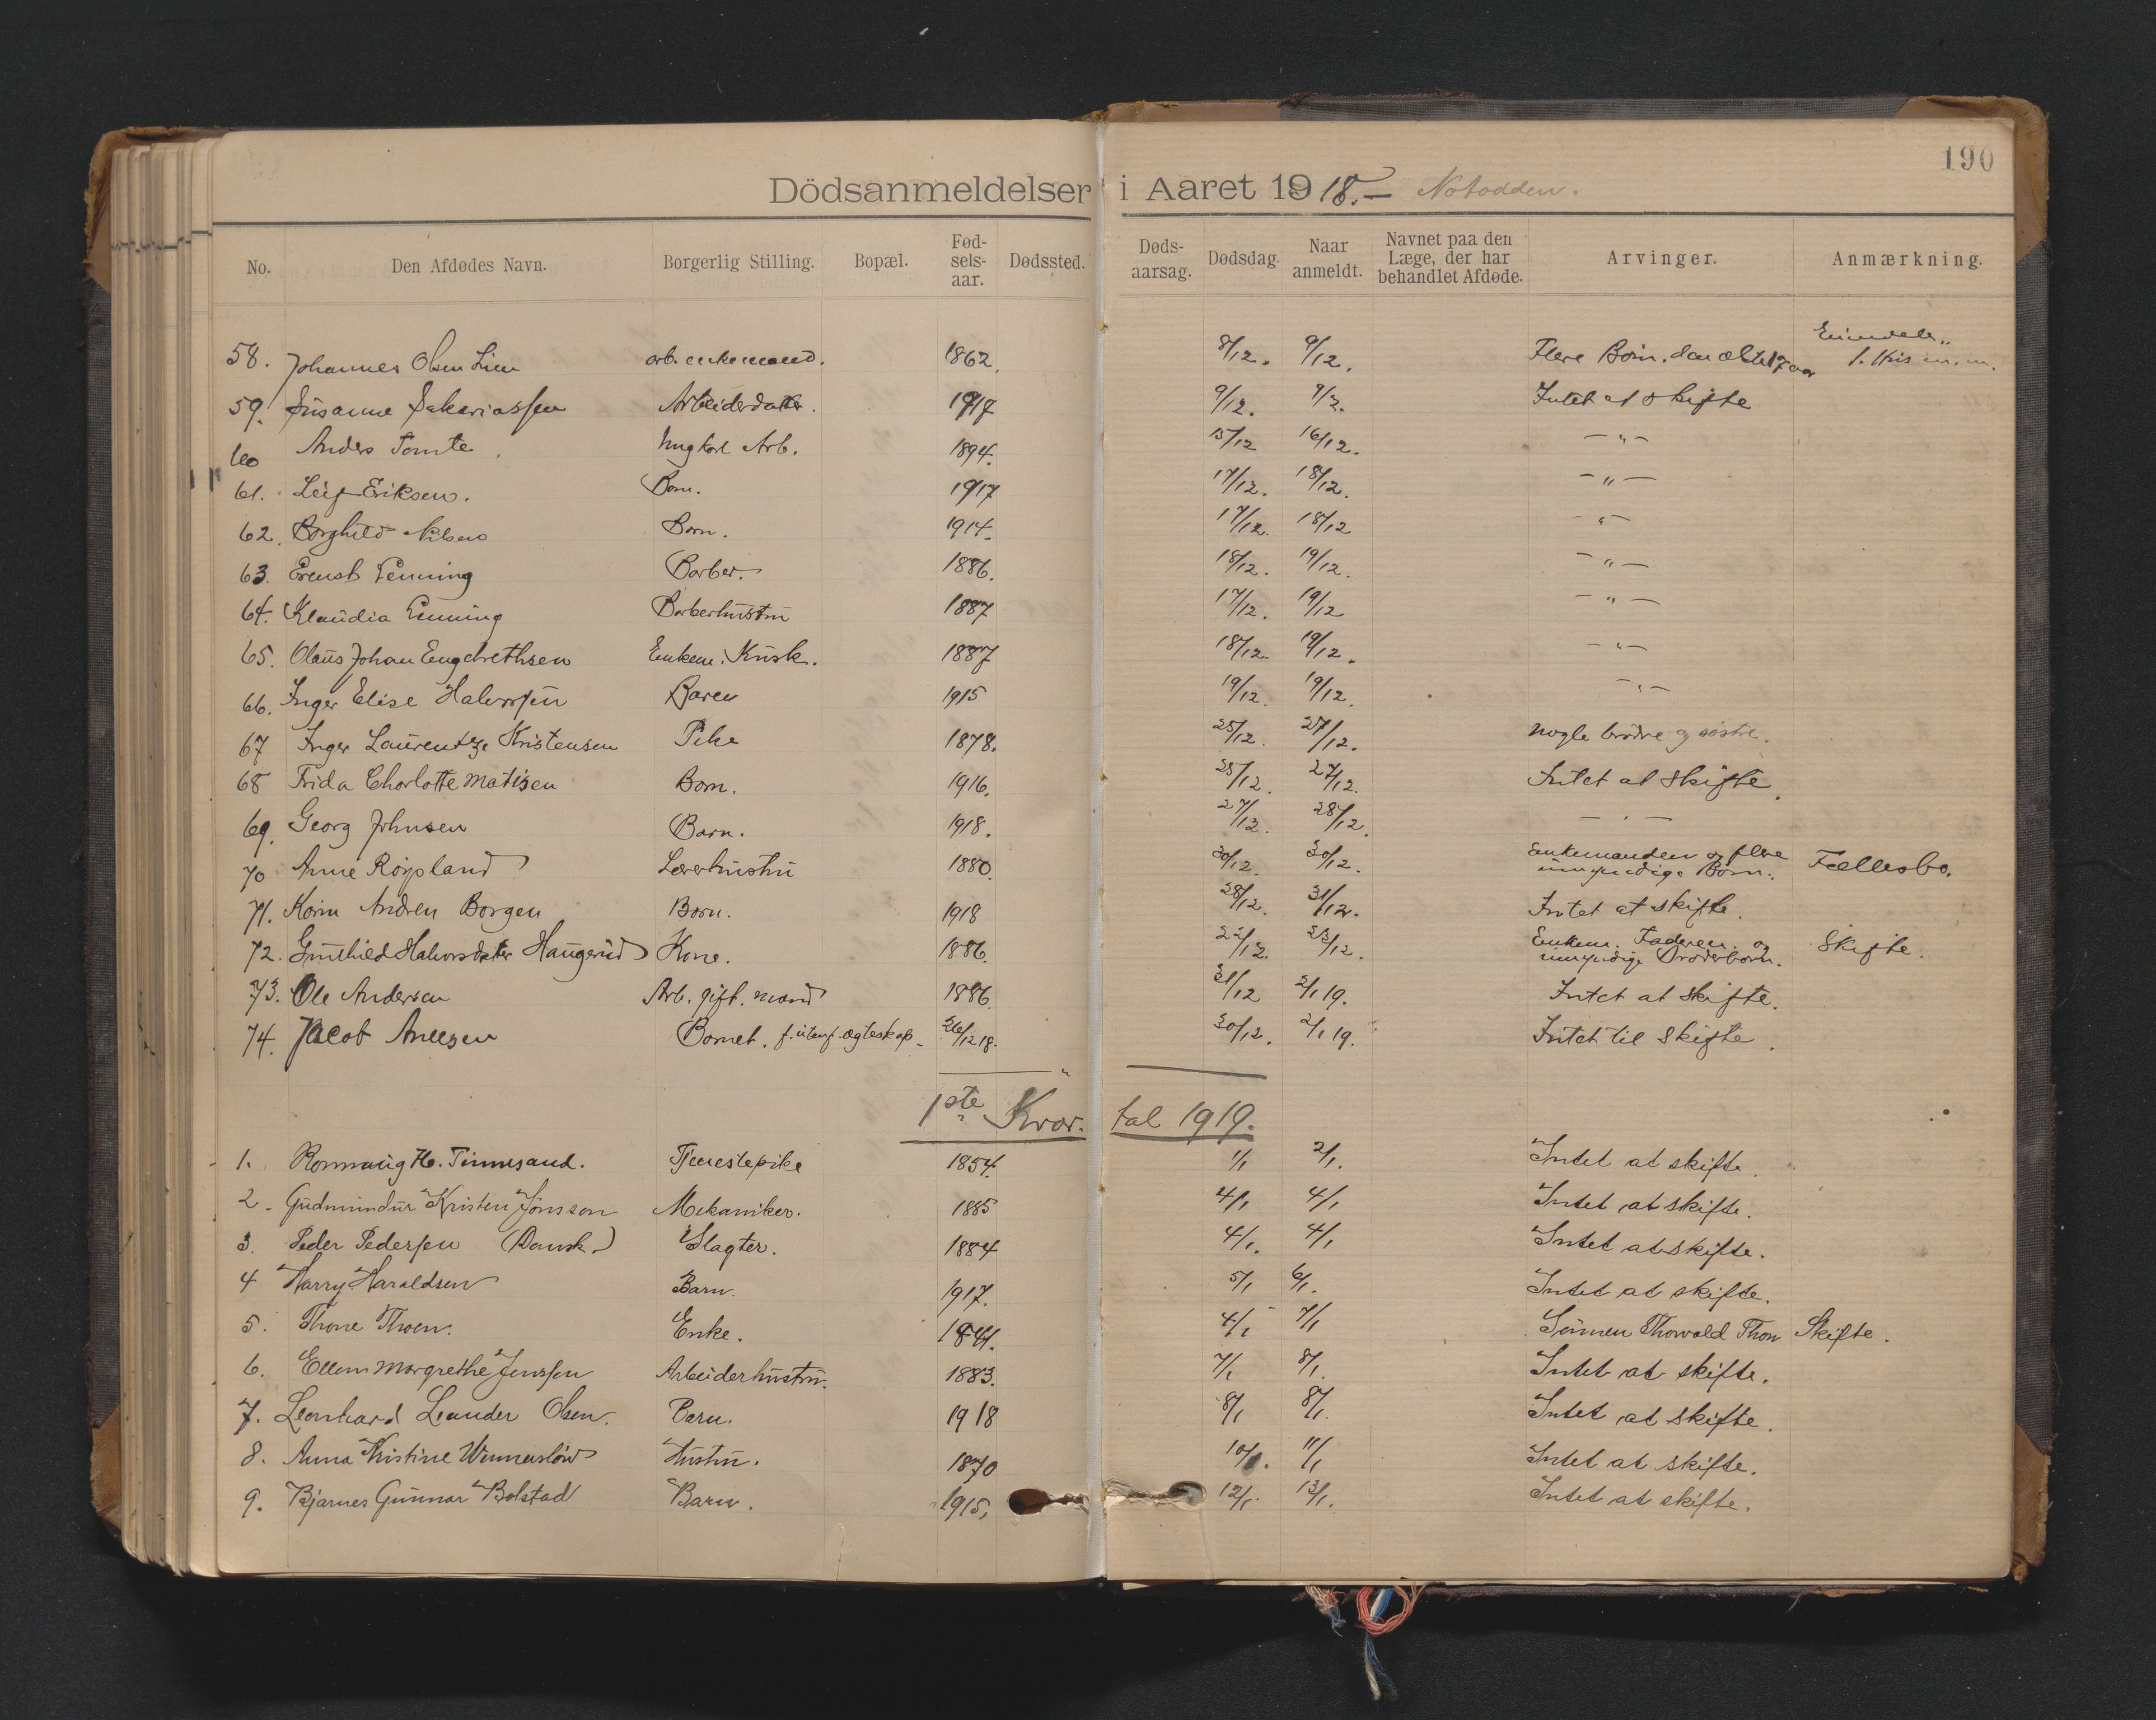 190
Dödsanmeldelser i Aaret 1918. — Notodden.
No. Den Afdødes Navn. Borgerlig Stilling. Bopæl. Fødselsaar. Dødssted. Dødsaarsag. Dødsdag. Naar anmeldt. Navnet paa den Læge, der har behandlet Afdøde. Arvinger. Anmærkning.
58. Johannes Olsen Lien arb. enkemand. 1862. 8/12. 9/12. Flere Børn. den ældste 17 aar
59. Susanne Sakariassen Arbeiderdatter. 1917 9/12. 9/12. Intet at skifte
60 Anders Tomte Ungkarl Arb. 1894. 15/12 16/12. — „ —
61. Leif Eriksen. Barn. 1917 17/12. 18/12. — „ —
62. Borghild Nilsen Barn. 1914. 17/12. 18/12 — „ —
63. Ernst Penning Barber. 1886. 18/12. 19/12. — „ —
64. Klaudia Penning Barberhustru 1887 17/12. 19/12 — „ —
65. Olaus Johan Engebrethsen Enkem. Kusk. 1887 18/12 19/12. — „ —
66. Inger Elise Halvorsen Barn 1915 19/12. 19/12. — „ —
67 Inger Laurentze Kristensen Pike 1878. 25/12. 27/12. nogle brødre og søstre.
68 Frida Charlotte Matisen Barn. 1916. 25/12. 27/12. Intet at skifte.
69. Georg Johnsen Barn. 1918. 27/12. 28/12. — „ —
70 Anne Røysland Lærerhustru 1880. 30/12. 30/12. Enkemanden og flere umyndige Børn. Fællesbo.
71. Karin Andrea Borgen Barn. 1918 28/12. 31/12. Intet at skifte.
72. Gunhild Halvorsdatter Haugerud Kone. 1886. 22/12. 23/12. Enkem. Faderen og umyndige Broderbørn. Skifte.
73. Ole Andersen Arb. gift. mand 1886. 31/12 2/1 19. Intet at skifte.
74. Jacob Aneesen Barnet. f. utenf. ægteskap. 26/12 18. 30/12. 2/1 19. Intet til skifte.
1ste Kvartal 1919.
1. Ronnaug H. Tinnesand. Tjenestepike 1854. 1/1 2/1. Intet at skifte.
2. Gudmundur Kristen Jónsson Mekaniker. 1885 4/1 4/1 Intet at skifte.
3. Peder Pedersen (Dansk.) Slagter. 1884 4/1. 4/1 Intet at skifte.
4 Harry Haraldsen Barn. 1917. 5/1 6/1. Intet at skifte.
5. Thone Thoen. Enke. 1841. 4/1 7/1 Sønnen Thorvald Thon Skifte.
6. Ellen Margrethe Jenssen Arbeiderhustru. 1883. 7/1 8/1. Intet at skifte.
7. Leonhard Leander Olsen. Barn. 1918 8/1 8/1. Intet at skifte.
8. Anna Kristine Wennersløw Hustru. 1870 10/1. 11/1 Intet at skifte.
9. Bjarnes Gunnar Bolstad Barn. 1915. 12/1. 13/1. Intet at skifte.